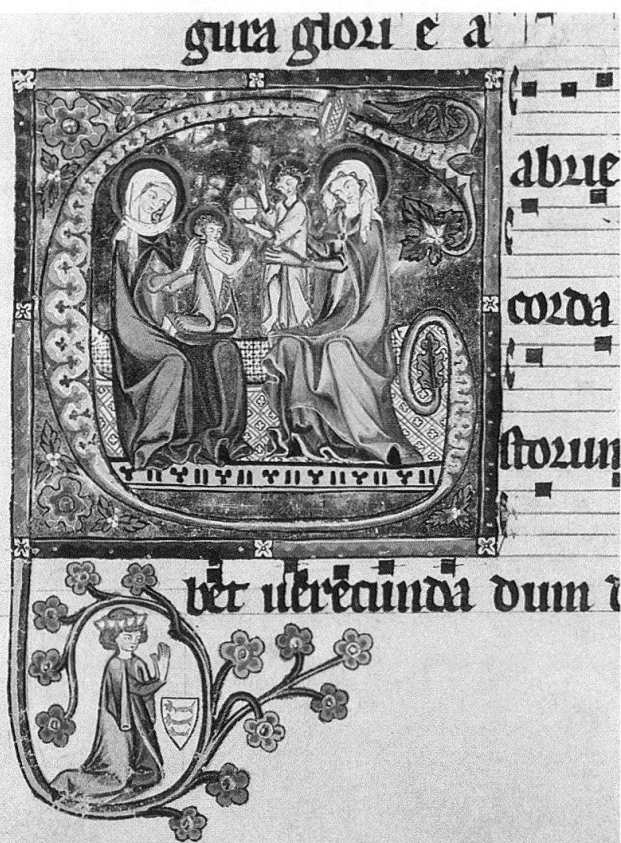 gura glori e a
abrie
corda
storum
bet uerecunda dum d